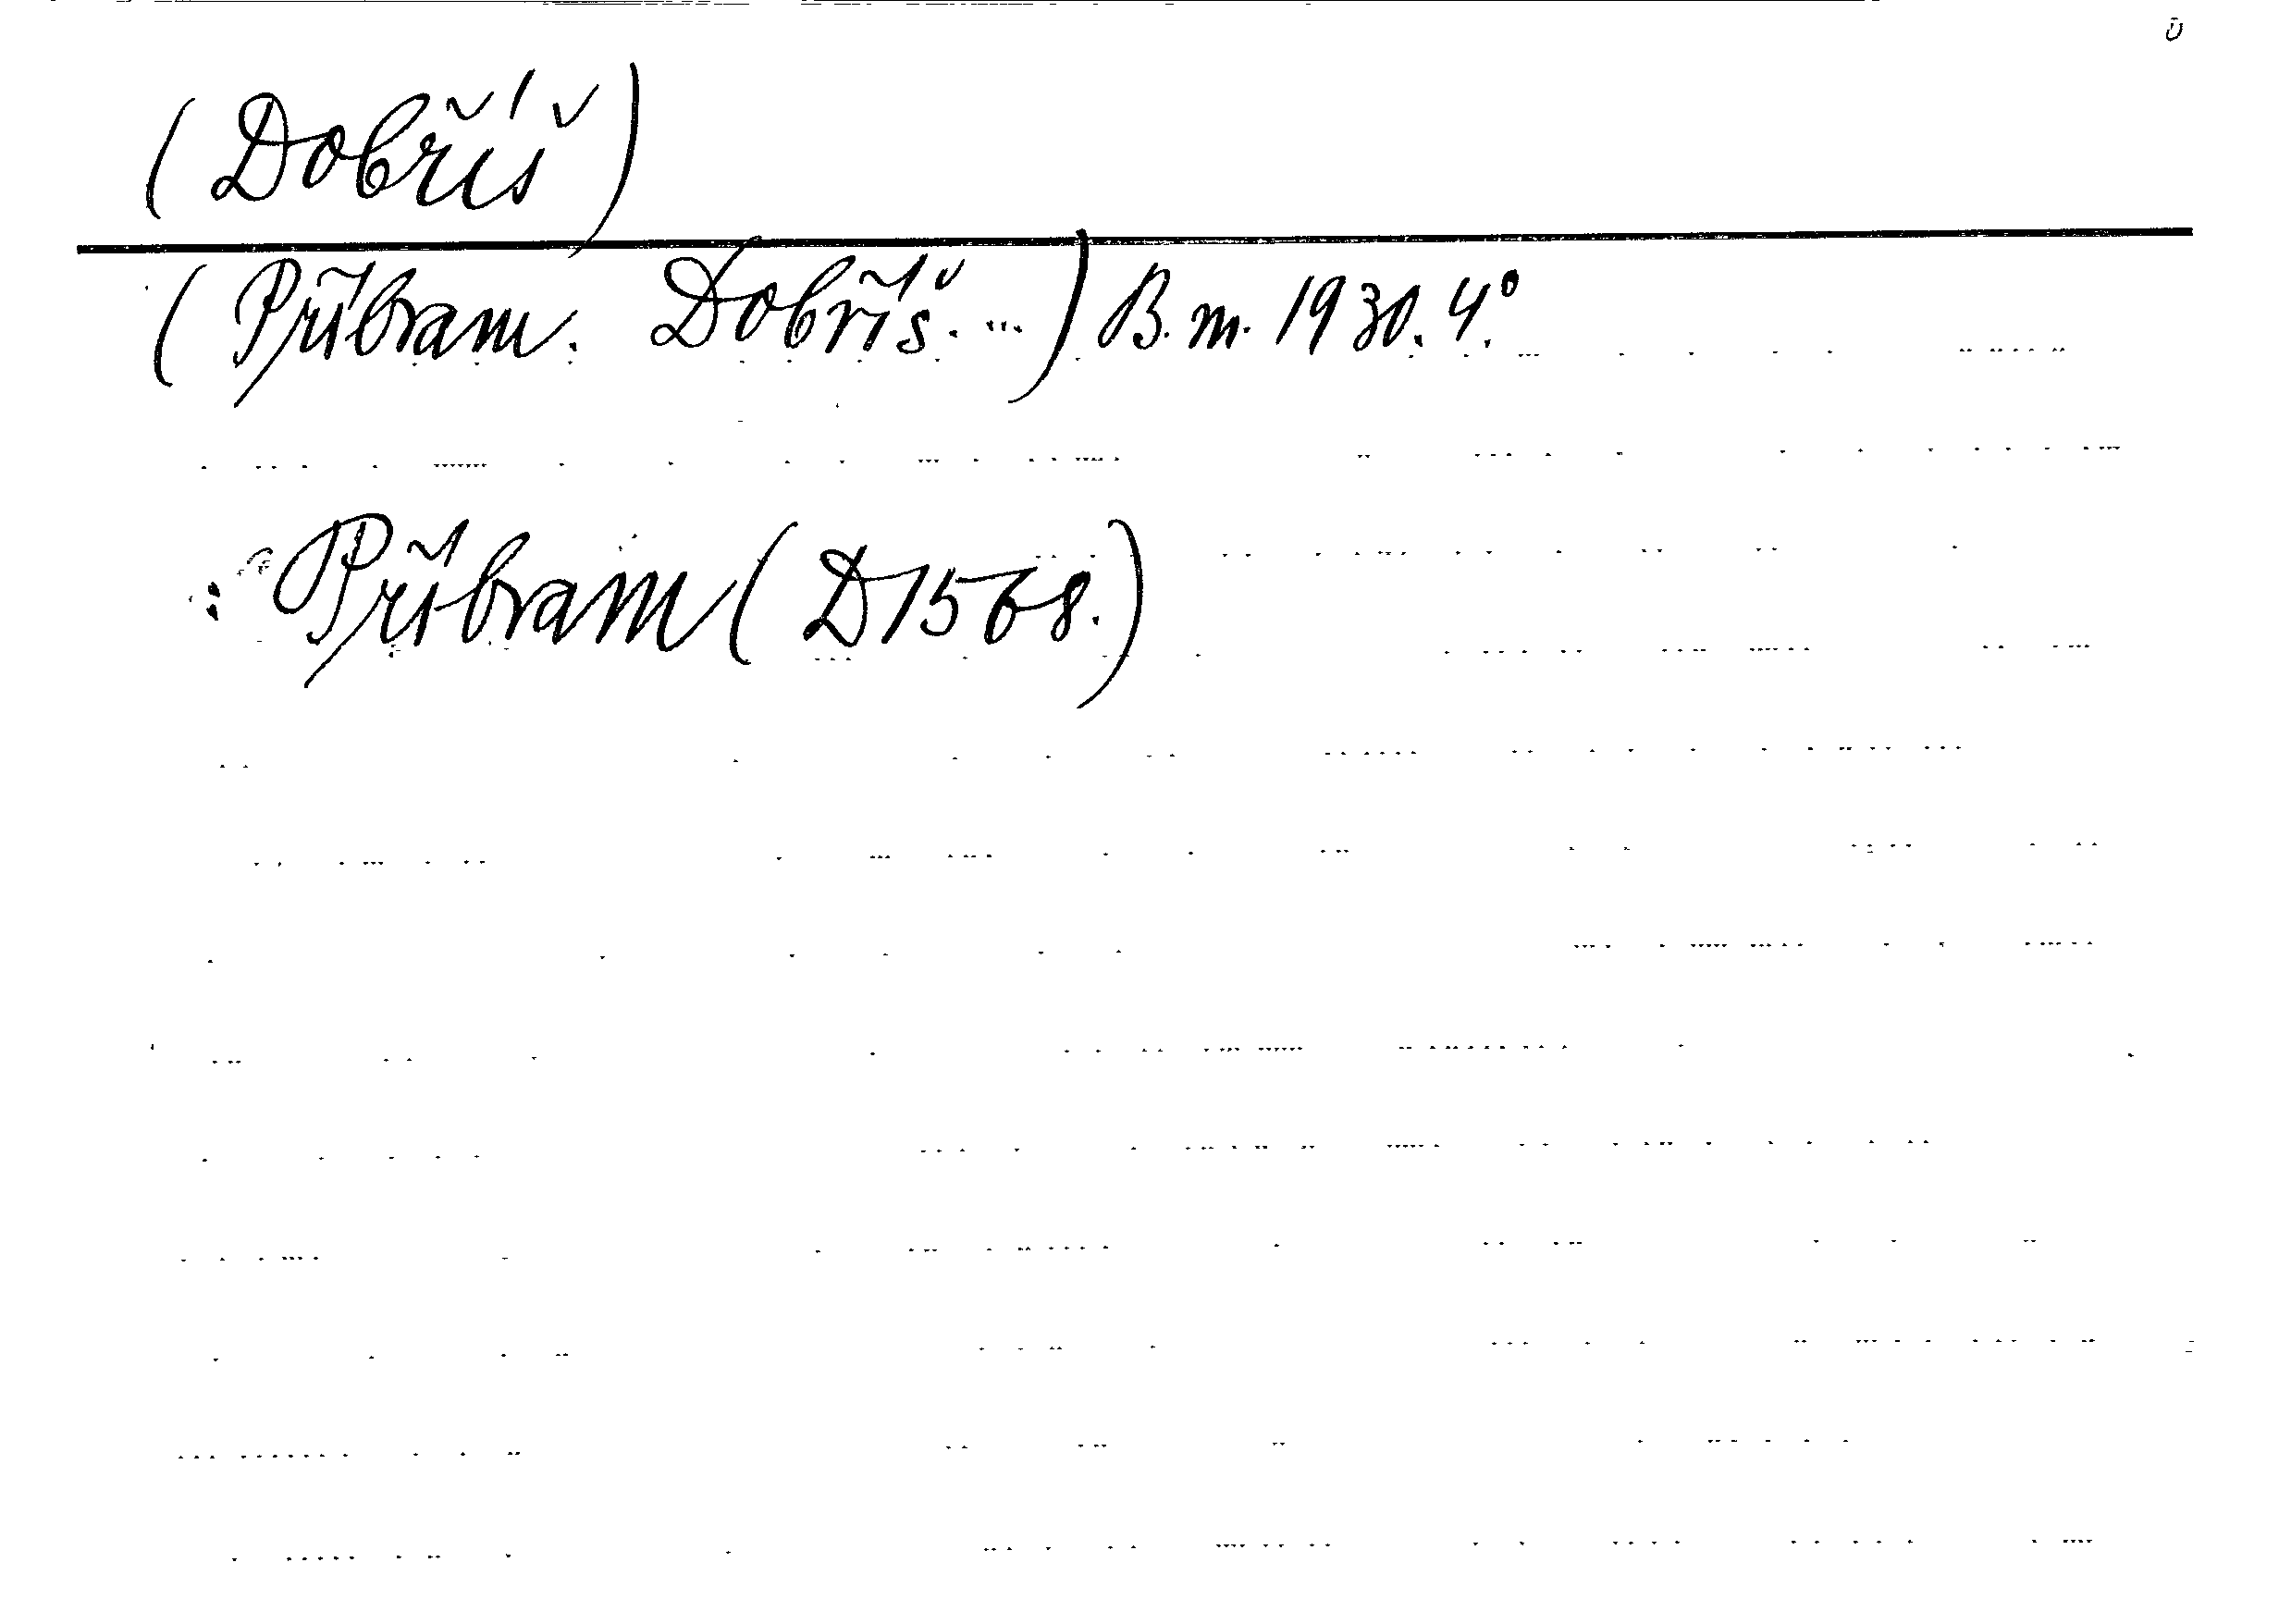 (Dobříš)
(Příbram. Dobříš. ...) B. m. 1930. 4°.
: Příbram (D1568.)